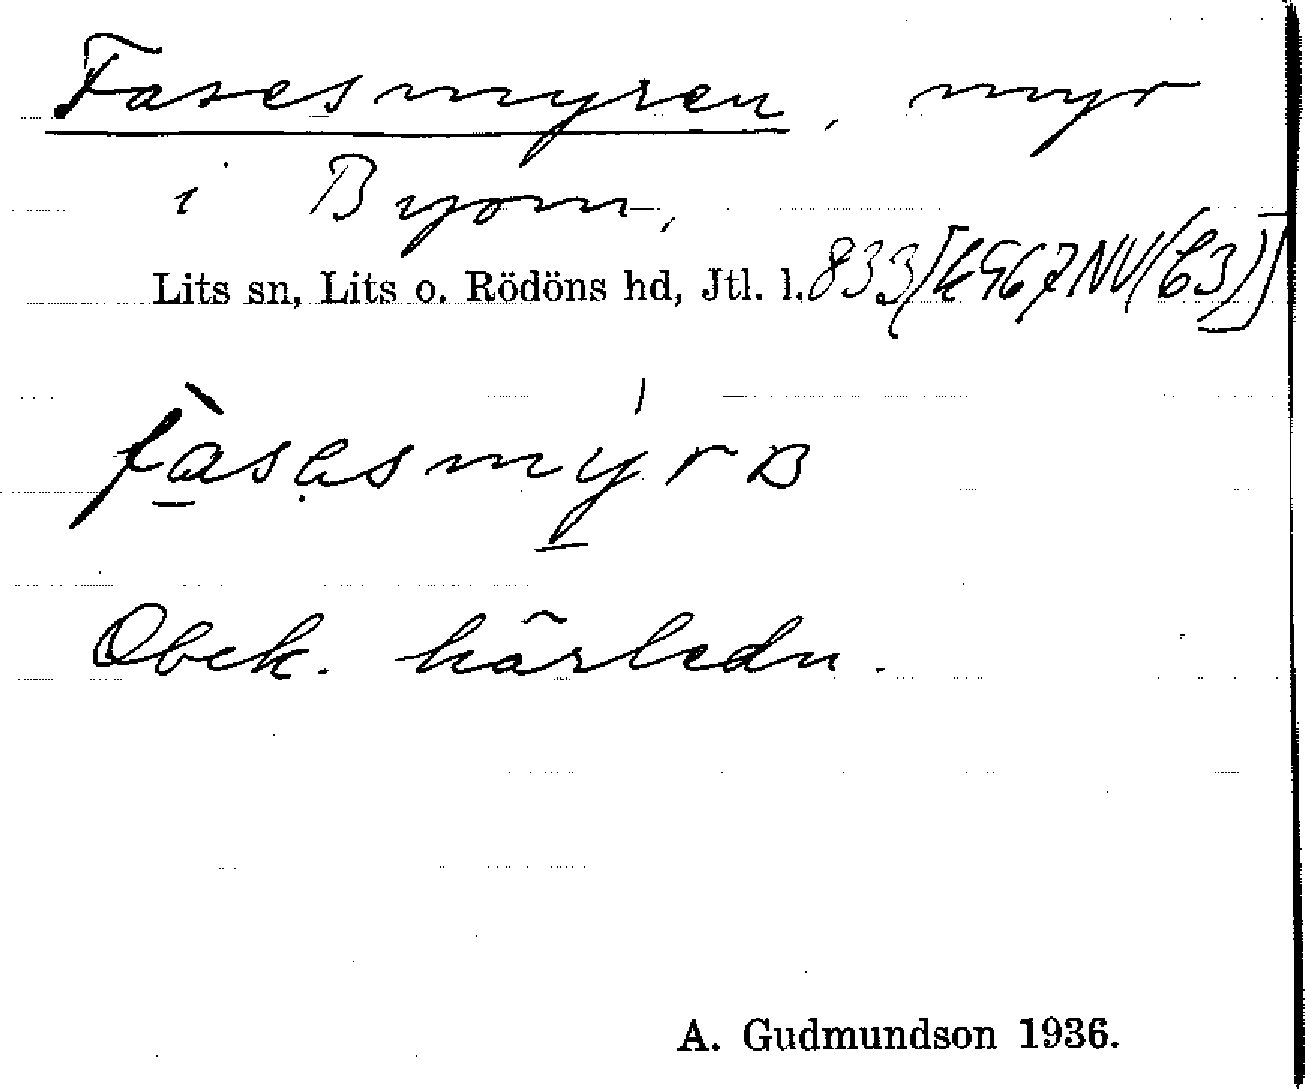 Fasesmyren, myr
i Byom,
Lits sn, Lits o. Rödöns hd, Jtl. l. 833
Obek. härledn.
A. Gudmundson 1936.